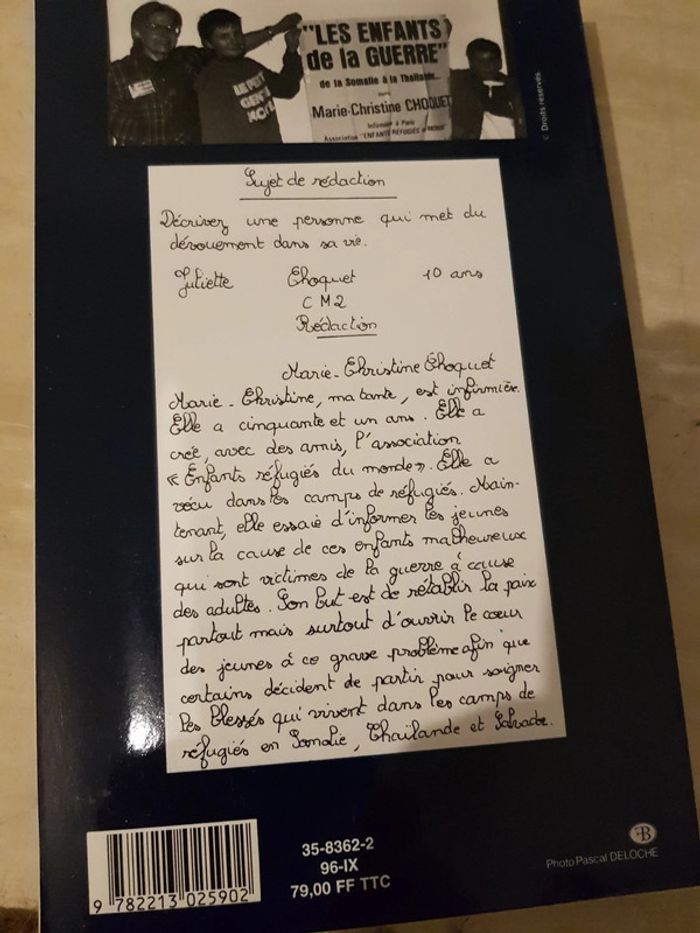 "LES ENFANTS
de la GUERRE"
de la Somalie à la Thaïlande...
Marie-Christine CHOQUET
Infirmière à Paris
Association "ENFANTS RÉFUGIÉS du MONDE"
© Droits réservés
Sujet de rédaction
Décrivez une personne qui met du
dévouement dans sa vie.
Juliette Choquet 10 ans
CM2
Rédaction
Marie-Christine Choquet
Marie-Christine, ma tante, est infirmière.
Elle a cinquante et un ans. Elle a
créé, avec des amis, l'association
« Enfants réfugiés du monde ». Elle a
vécu dans les camps de réfugiés. Main-
tenant, elle essaie d'informer les jeunes
sur la cause de ces enfants malheureux
qui sont victimes de la guerre à cause
des adultes. Son but est de rétablir la paix
partout mais surtout d'ouvrir le cœur
des jeunes à ce grave problème afin que
certains décident de partir pour soigner
les blessés qui vivent dans les camps de
réfugiés en Somalie, Thaïlande et Salvador.
9 782213 025902
35-8362-2
96-IX
79,00 FF TTC
Photo Pascal DELOCHE